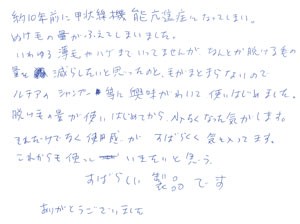 約10年前に甲状線機能亢進症になってしまい。
ぬけ毛の量がふえてしまいました。
いわゆる薄毛やハゲまでいってませんが なんとか脱ける毛の
量を減らしたいと思ったのと、毛がまとまらないので
ルチアのシャンプー等に興味がわいて使いはじめました。
脱け毛の量が使いはじめてから、少なくなった気がします。
それだけでなく使用感がすばらしく気に入ってます。
これからも使っていきたいと思う
すばらしい製品です
ありがとうございました